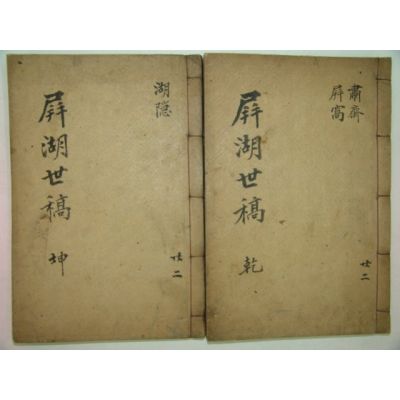 肅齋
屛窩
共二
屛湖世稿 乾
湖隠
共二
屛湖世稿 坤